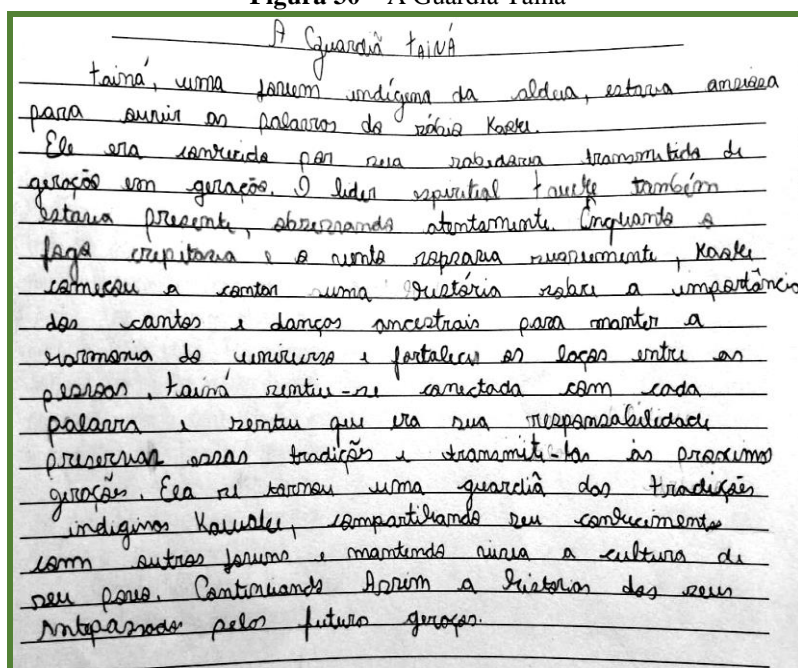 Figura 50 – A Guardiã Tainá
A Guardiã TAINÁ
Tainá, uma jovem indígena da aldeia, estava ansiosa
para ouvir as palavras do sábio Kaske.
Ele era conhecido por sua sabedoria transmitida de
geração em geração. O lider espiritual também
estava presente, observando atentamente. Enquanto o
fogo crepitava e o vento soprava suavemente, Kaske
começou a contar uma história sobre a importância
dos cantos e danças ancestrais para manter a
harmonia do universo e fortalecer os laços entre as
pessoas, tainá sentiu-se conectada com cada
palavra e sentiu que era sua responsabilidade
preservar essas tradições e transmiti-las às proximas
gerações. Ela se tornou uma guardiã das tradições
indiginas, compartilhando seu conhecimento
com outros jovens e mantendo viva a cultura de
seu povo. Continuando Assim a história dos seus
Antepassados pelos futuras gerações.